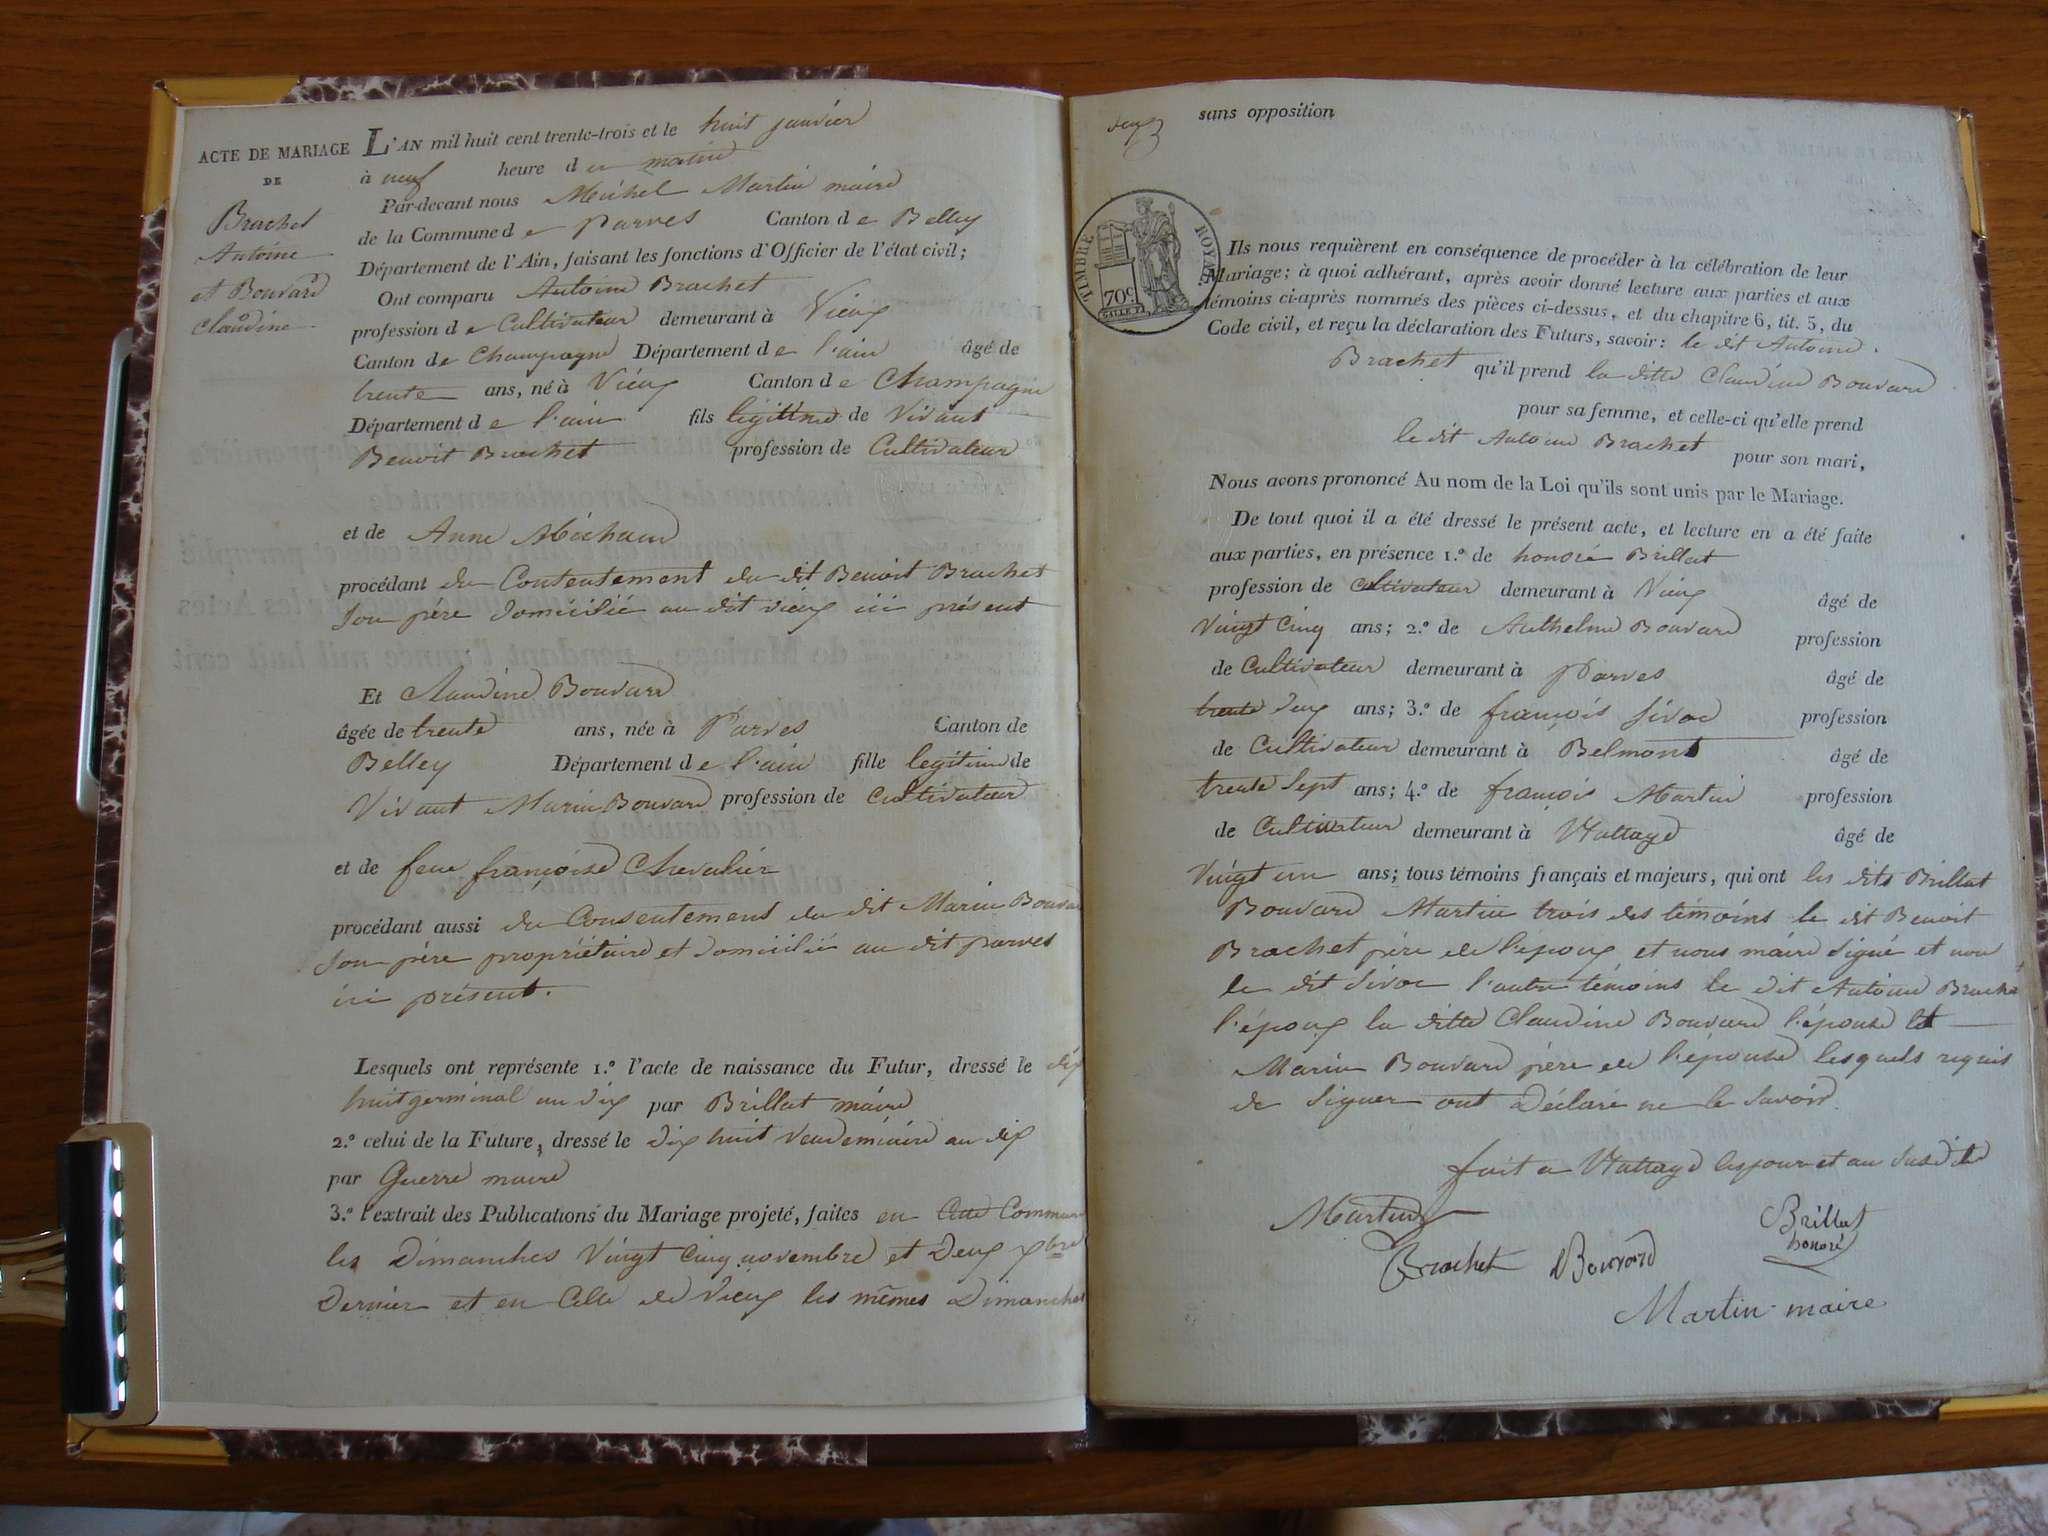 ACTE DE MARIAGE
DE
Brachet
Antoine
et Bouvard
Claudine
L'AN mil huit cent trente-trois et le huit janvier
à neuf heure du matin
Par-devant nous Michel Martin maire
de la Commune de Parves Canton de Belley
Département de l'Ain, faisant les fonctions d'Officier de l'état civil;
Ont comparu Antoine Brachet
profession de Cultivateur demeurant à Vieux
Canton de Champagne Département de l'ain âgé de
trente ans, né à Vieux Canton de Champagne
Département de l'ain fils légitime de vivant
Benoit Brachet profession de Cultivateur
et de Anne Michaud
procédant du Contentement du dit Benoit Brachet
son père domicilié au dit vieux ici présent
Et Claudine Bouvard
âgée de trente ans, née à Parves Canton de
Belley Département de l'ain fille legitime de
Vivant Marin Bouvard profession de cultivateur
et de feue françoise Chevalier
procédant aussi du Consentement du dit Marin Bouvard
son père propriétaire et domicilié au dit parves
ici présent.
Lesquels ont représente 1.º l'acte de naissance du Futur, dressé le dix
huit germinal an dix par Brillat maire
2.º celui de la Future, dressé le dix huit vendemiaire an dix
par Guerre maire
3.º l'extrait des Publications du Mariage projeté, faites en Cette Commune
les Dimanches vingt cinq novembre et Deux xbre
Dernier et en Celle de Vieux les mêmes Dimanches
deux
sans opposition
TIMBRE ROYAL
70c
Ils nous requièrent en conséquence de procéder à la célébration de leur
Mariage; à quoi adhérant, après avoir donné lecture aux parties et aux
témoins ci-après nommés des pièces ci-dessus, et du chapitre 6, tit. 5, du
Code civil, et reçu la déclaration des Futurs, savoir: le dit Antoine
Brachet qu'il prend la ditte Claudine Bouvard
pour sa femme, et celle-ci qu'elle prend
le dit Antoine Brachet pour son mari,
Nous avons prononcé Au nom de la Loi qu'ils sont unis par le Mariage.
De tout quoi il a été dressé le présent acte, et lecture en a été faite
aux parties, en présence 1.º de honoré Brillat
profession de cultivateur demeurant à Vieux âgé de
vingt Cinq ans; 2.º de Anthelme Bouvard profession
de Cultivateur demeurant à Parves âgé de
trente deux ans; 3.º de françois Sivoc profession
de Cultivateur demeurant à Belmont âgé de
trente Sept ans; 4.º de françois Martin profession
de Cultivateur demeurant à Nattage âgé de
Vingt un ans; tous témoins français et majeurs, qui ont les dits Brillat
Bouvard Martin trois des témoins le dit Benoit
Brachet père de l'époux et nous maire signé et non
le dit Sivoc l'autre témoins le dit Antoine Brachet
l'époux la ditte Claudine Bouvard l'épouse et
Marin Bouvard père de l'épouse lesquels requis
de signer ont Déclaré ne le savoir.
fait a Nattage les jour et an susdits
Martin
Brillat
honoré
Brachet Bouvard
Martin maire